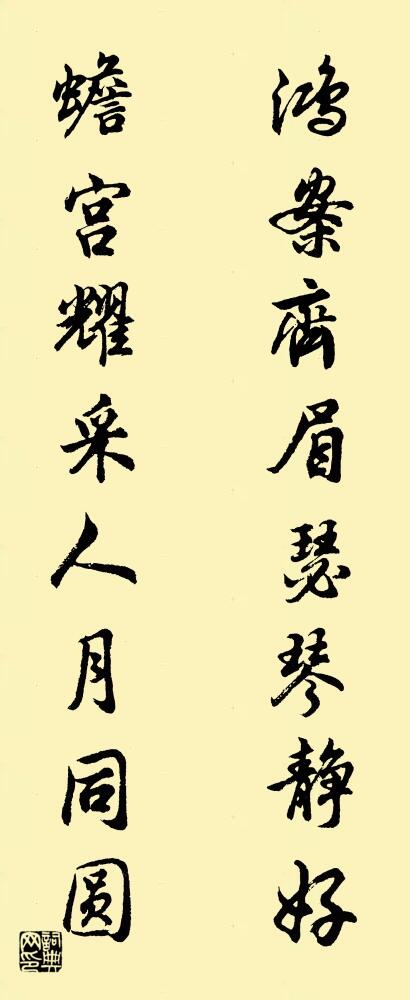 鸿案齊眉瑟琴静好
蟾宫耀采人月同圆
詞典网印